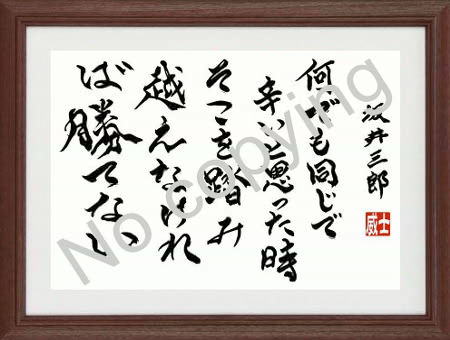 坂井三郎
威士
何でも同じで
辛いと思った時
そこを踏み
越えなけれ
ば勝てない
No copying